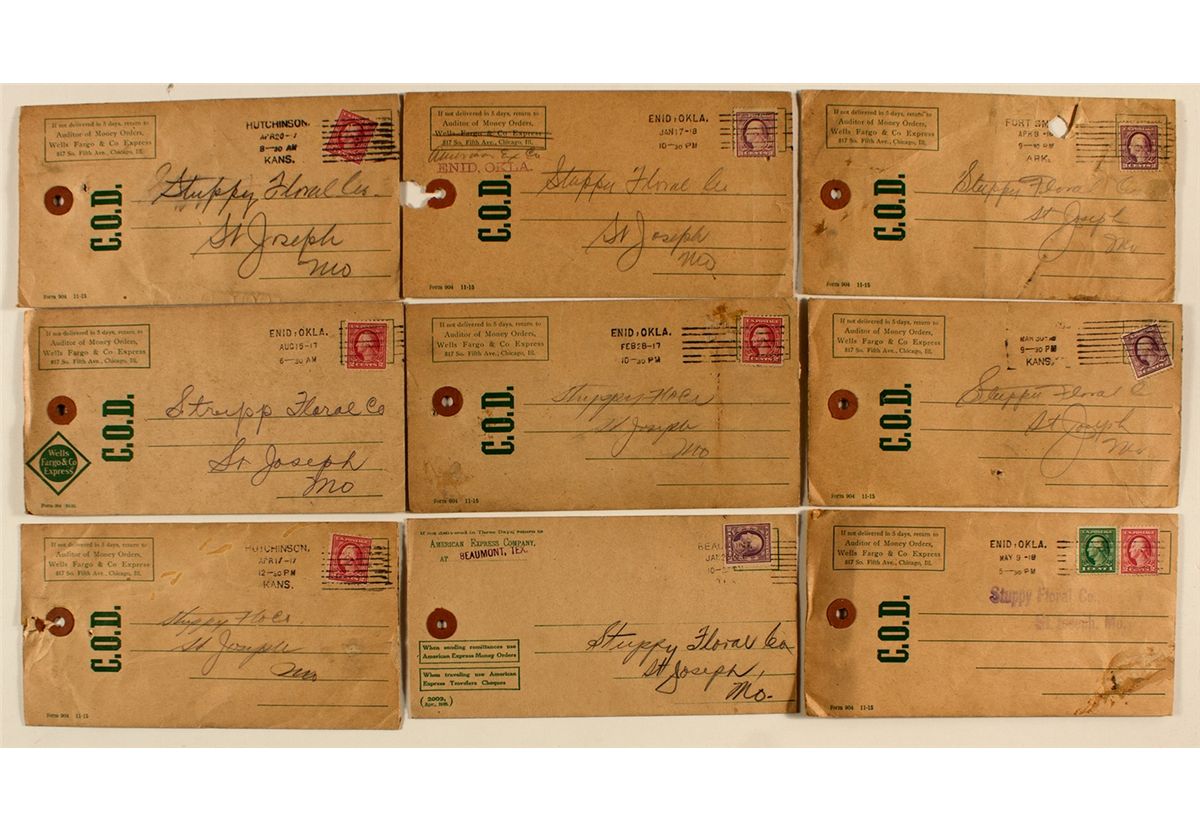 If not delivered in 5 days, return to
Auditor of Money Orders,
Wells Fargo & Co Express
817 So. Fifth Ave., Chicago, Ill.
HUTCHINSON,
APR20-17
8-30 AM
KANS.
C.O.D.
Stuppy Floral Co.
St Joseph
Mo
Form 904 11-15
If not delivered in 5 days, return to
Auditor of Money Orders,
Wells Fargo & Co Express
817 So. Fifth Ave., Chicago, Ill.
American Ex Co
ENID, OKLA.
ENID, OKLA.
JAN17-18
10-30 PM
C.O.D.
Stuppy Floral Co
St Joseph
Mo
Form 904 11-15
If not delivered in 5 days, return to
Auditor of Money Orders,
Wells Fargo & Co Express
817 So. Fifth Ave., Chicago, Ill.
FORT SM
APR 8
9-30 PM
ARK.
C.O.D.
Stuppy Floral Co
St Joseph
Mo
Form 904 11-15
If not delivered in 5 days, return to
Auditor of Money Orders,
Wells Fargo & Co Express
817 So. Fifth Ave., Chicago, Ill.
ENID, OKLA.
AUG15-17
6-30 AM
U.S. POSTAGE
2 CENTS 2
C.O.D.
Wells
Fargo & Co
Express
Strupp Floral Co
St Joseph
Mo
If not delivered in 5 days, return to
Auditor of Money Orders,
Wells Fargo & Co Express
817 So. Fifth Ave., Chicago, Ill.
ENID, OKLA.
FEB28-17
10-30 PM
U.S. POSTAGE
2 CENTS 2
C.O.D.
Stuppy Flo Co
St Joseph
Mo
Form 904 11-15
If not delivered in 5 days, return to
Auditor of Money Orders,
Wells Fargo & Co Express
817 So. Fifth Ave., Chicago, Ill.
MAR 30
9-30 PM
KANS.
C.O.D.
Stuppy Floral C
St Joseph
Mo
Form 904 11-15
If not delivered in 5 days, return to
Auditor of Money Orders,
Wells Fargo & Co Express
817 So. Fifth Ave., Chicago, Ill.
HUTCHINSON,
APR17-17
12-30 PM
KANS.
C.O.D.
Stuppy Flo Co.
St Joseph
Mo
Form 904 11-15
If not delivered in Three Days, return to
AMERICAN EXPRESS COMPANY,
AT BEAUMONT, TEX.
BEAU
JAN2
When sending remittances use
American Express Money Orders
When traveling use American
Express Travelers Cheques
Stuppy Floral Co
St Joseph,
Mo.
If not delivered in 5 days, return to
Auditor of Money Orders,
Wells Fargo & Co Express
817 So. Fifth Ave., Chicago, Ill.
ENID, OKLA.
MAY 9-18
5-30 PM
U.S. POSTAGE
1 CENT 1
U.S. POSTAGE
2 CENTS 2
C.O.D.
Stuppy Floral Co.
St. Joseph, Mo.
Form 904 11-15